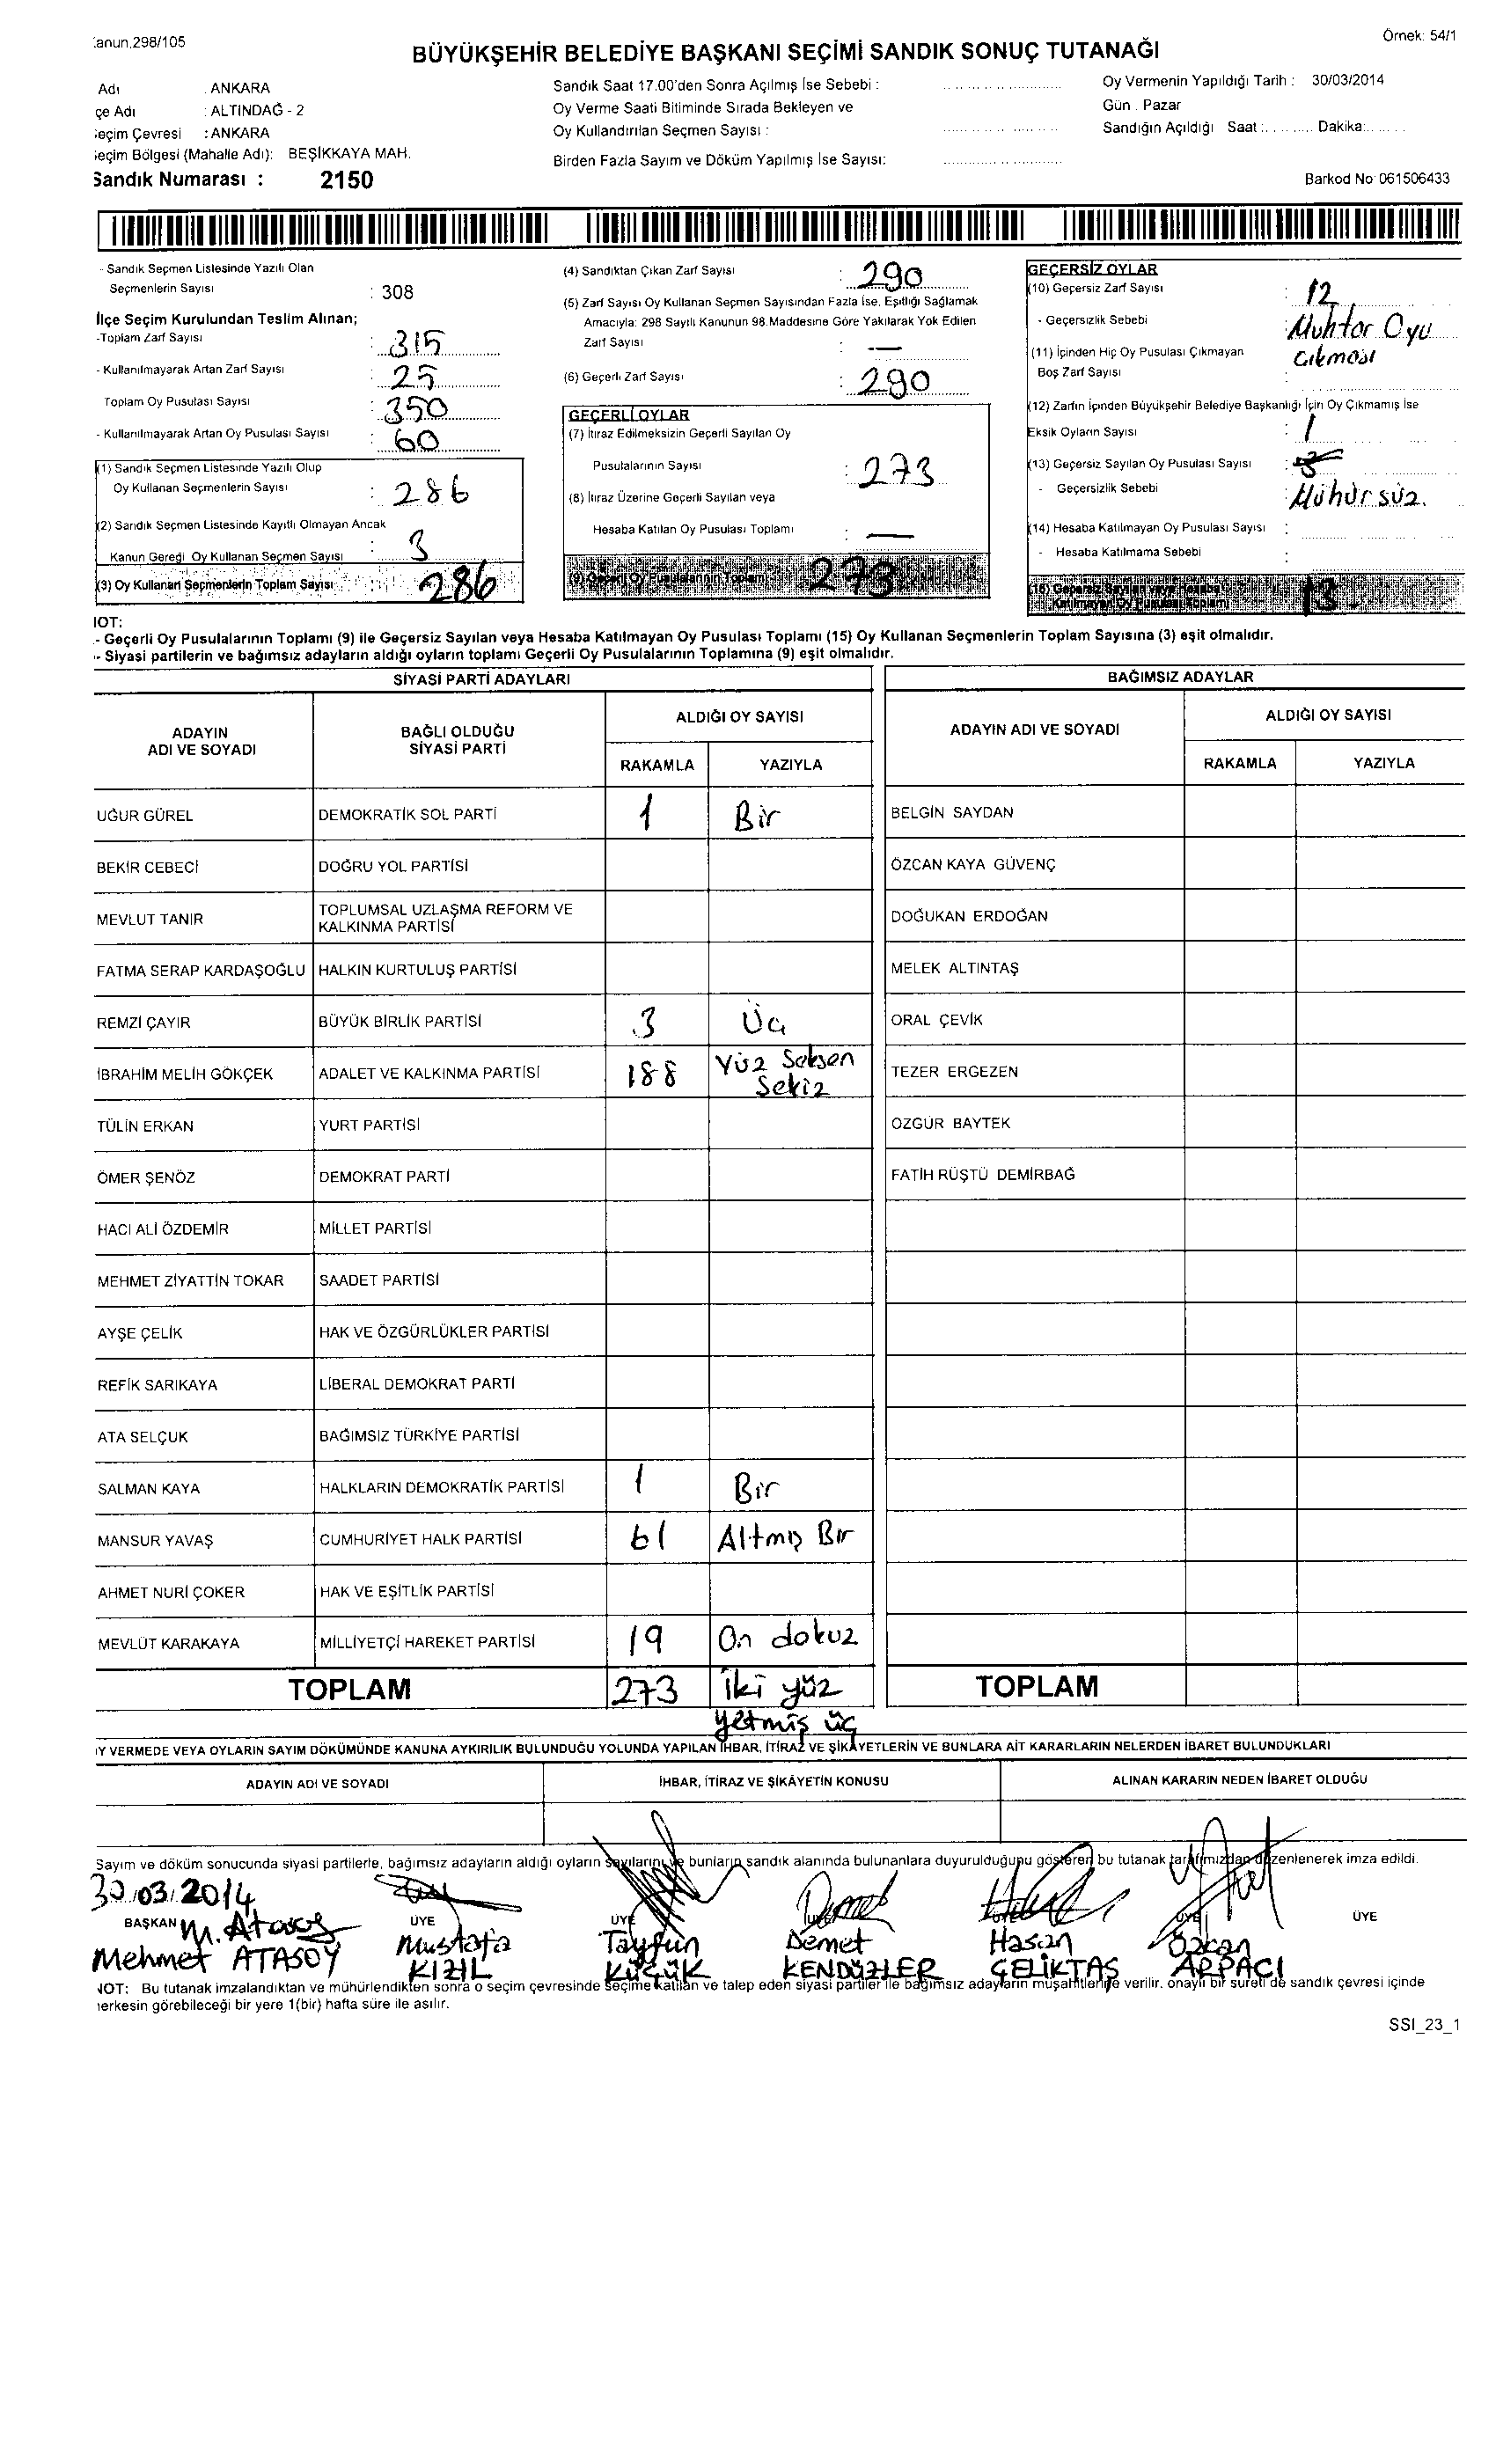 Kanun.298/105
Örnek: 54/1
BÜYÜKŞEHİR BELEDİYE BAŞKANI SEÇİMİ SANDIK SONUÇ TUTANAĞI
Adı : ANKARA
Sandık Saat 17.00'den Sonra Açılmış İse Sebebi :
Oy Vermenin Yapıldığı Tarih : 30/03/2014
çe Adı : ALTINDAĞ - 2
Oy Verme Saati Bitiminde Sırada Bekleyen ve
Gün : Pazar
eçim Çevresi : ANKARA
Oy Kullandırılan Seçmen Sayısı :
Sandığın Açıldığı Saat : Dakika:
eçim Bölgesi (Mahalle Adı): BEŞİKKAYA MAH.
Birden Fazla Sayım ve Döküm Yapılmış İse Sayısı:
Sandık Numarası : 2150
Barkod No: 061506433
- Sandık Seçmen Listesinde Yazılı Olan
Seçmenlerin Sayısı : 308
İlçe Seçim Kurulundan Teslim Alınan;
-Toplam Zarf Sayısı : 315
- Kullanılmayarak Artan Zarf Sayısı : 25
Toplam Oy Pusulası Sayısı : 350
- Kullanılmayarak Artan Oy Pusulası Sayısı : 60
(1) Sandık Seçmen Listesinde Yazılı Olup
Oy Kullanan Seçmenlerin Sayısı : 286
(2) Sandık Seçmen Listesinde Kayıtlı Olmayan Ancak
Kanun Gereği Oy Kullanan Seçmen Sayısı : 3
(3) Oy Kullanan Seçmenlerin Toplam Sayısı : 286
(4) Sandıktan Çıkan Zarf Sayısı : 290
(5) Zarf Sayısı Oy Kullanan Seçmen Sayısından Fazla İse, Eşitliği Sağlamak
Amacıyla: 298 Sayılı Kanunun 98.Maddesine Göre Yakılarak Yok Edilen
Zarf Sayısı : —
(6) Geçerli Zarf Sayısı : 290
GEÇERLİ OYLAR
(7) İtiraz Edilmeksizin Geçerli Sayılan Oy
Pusulalarının Sayısı : 273
(8) İtiraz Üzerine Geçerli Sayılan veya
Hesaba Katılan Oy Pusulası Toplamı : —
(9) Geçerli Oy Pusulalarının Toplamı 273
GEÇERSİZ OYLAR
(10) Geçersiz Zarf Sayısı : 12
- Geçersizlik Sebebi : Muhtar Oyu
(11) İçinden Hiç Oy Pusulası Çıkmayan Çıkması
Boş Zarf Sayısı :
(12) Zarfın İçinden Büyükşehir Belediye Başkanlığı İçin Oy Çıkmamış İse
Eksik Oyların Sayısı : 1
(13) Geçersiz Sayılan Oy Pusulası Sayısı :
- Geçersizlik Sebebi : Mühürsüz.
(14) Hesaba Katılmayan Oy Pusulası Sayısı :
- Hesaba Katılmama Sebebi :
(15) Geçersiz Sayılan veya Hesaba
Katılmayan Oy Pusulası Toplamı 13
NOT:
- Geçerli Oy Pusulalarının Toplamı (9) ile Geçersiz Sayılan veya Hesaba Katılmayan Oy Pusulası Toplamı (15) Oy Kullanan Seçmenlerin Toplam Sayısına (3) eşit olmalıdır.
- Siyasi partilerin ve bağımsız adayların aldığı oyların toplamı Geçerli Oy Pusulalarının Toplamına (9) eşit olmalıdır.
SİYASİ PARTİ ADAYLARI
BAĞIMSIZ ADAYLAR
ADAYIN ADI VE SOYADI
BAĞLI OLDUĞU SİYASİ PARTİ
ALDIĞI OY SAYISI
ADAYIN ADI VE SOYADI
ALDIĞI OY SAYISI
RAKAMLA YAZIYLA
RAKAMLA YAZIYLA
UĞUR GÜREL DEMOKRATİK SOL PARTİ 1 Bir BELGİN SAYDAN
BEKİR CEBECİ DOĞRU YOL PARTİSİ ÖZCAN KAYA GÜVENÇ
MEVLUT TANIR TOPLUMSAL UZLAŞMA REFORM VE KALKINMA PARTİSİ DOĞUKAN ERDOĞAN
FATMA SERAP KARDAŞOĞLU HALKIN KURTULUŞ PARTİSİ MELEK ALTINTAŞ
REMZİ ÇAYIR BÜYÜK BİRLİK PARTİSİ 3 Üç ORAL ÇEVİK
İBRAHİM MELİH GÖKÇEK ADALET VE KALKINMA PARTİSİ 188 Yüz Seksen Sekiz TEZER ERGEZEN
TÜLİN ERKAN YURT PARTİSİ ÖZGÜR BAYTEK
ÖMER ŞENÖZ DEMOKRAT PARTİ FATİH RÜŞTÜ DEMİRBAĞ
HACI ALİ ÖZDEMİR MİLLET PARTİSİ
MEHMET ZİYATTİN TOKAR SAADET PARTİSİ
AYŞE ÇELİK HAK VE ÖZGÜRLÜKLER PARTİSİ
REFİK SARIKAYA LİBERAL DEMOKRAT PARTİ
ATA SELÇUK BAĞIMSIZ TÜRKİYE PARTİSİ
SALMAN KAYA HALKLARIN DEMOKRATİK PARTİSİ 1 Bir
MANSUR YAVAŞ CUMHURİYET HALK PARTİSİ 61 Altmış Bir
AHMET NURİ ÇOKER HAK VE EŞİTLİK PARTİSİ
MEVLÜT KARAKAYA MİLLİYETÇİ HAREKET PARTİSİ 19 On dokuz
TOPLAM 273 İki yüz yetmiş üç TOPLAM
OY VERMEDE VEYA OYLARIN SAYIM DÖKÜMÜNDE KANUNA AYKIRILIK BULUNDUĞU YOLUNDA YAPILAN İHBAR, İTİRAZ VE ŞİKAYETLERİN VE BUNLARA AİT KARARLARIN NELERDEN İBARET BULUNDUKLARI
ADAYIN ADI VE SOYADI İHBAR, İTİRAZ VE ŞİKÂYETİN KONUSU ALINAN KARARIN NEDEN İBARET OLDUĞU
Sayım ve döküm sonucunda siyasi partilerle, bağımsız adayların aldığı oyların sayılarını ve bunların sandık alanında bulunanlara duyurulduğunu gösteren bu tutanak tarafımızdan düzenlenerek imza edildi.
30.03.2014
BAŞKAN ÜYE ÜYE ÜYE ÜYE ÜYE ÜYE
M. Atasoy
Mehmet ATASOY Mustafa KIZIL Tayfun Küçük Demet KENDÜZLER Hasan ÇELİKTAŞ Özkan ARPACI
NOT: Bu tutanak imzalandıktan ve mühürlendikten sonra o seçim çevresinde seçime katılan ve talep eden siyasi partiler ile bağımsız adayların müşahitlerine verilir. onaylı bir sureti de sandık çevresi içinde
herkesin görebileceği bir yere 1(bir) hafta süre ile asılır.
SSI_23_1